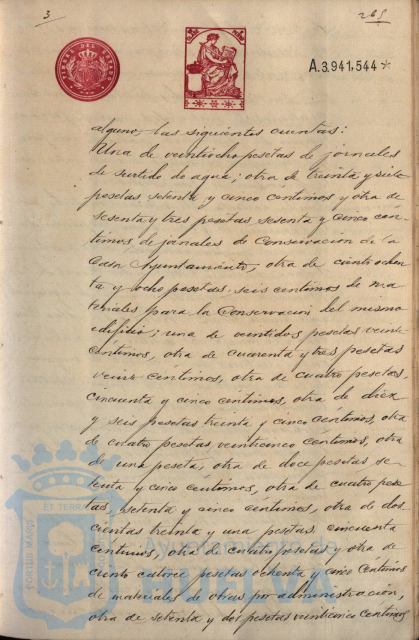 3
265
TIMBRE DEL ESTADO
A.3,941,544*
alguno, las siguientes cuentas:
Una de veintiocho pesetas de jornales
de surtido de agua; otra de treinta y siete
pesetas setenta y cinco céntimos y otra de
sesenta y tres pesetas sesenta y cinco cén-
timos de jornales de Conservación de la
Casa Ayuntamiento, otra de ciento ochen-
ta y ocho pesetas, seis centimos de ma-
teriales para la Conservación del mismo
edificio; una de veintidos pesetas veinte
céntimos, otra de cuarenta y tres pesetas
veinte céntimos, otra de cuatro pesetas,
cincuenta y cinco centimos, otra de diez
y seis pesetas treinta y cinco céntimos, otra
de cuatro pesetas veinticinco centimos, otra
de una peseta, otra de doce pesetas se-
tenta y cinco céntimos, otra de cuatro pese-
tas, setenta y cinco céntimos, otra de dos-
cientas treinta y una pesetas, cincuenta
centimos, otra de cuatro pesetas y otra de
ciento catorce pesetas ochenta y cinco centimos
de materiales de obras por administración,
otra de setenta y dos pesetas veinticinco centimos
ET TERRA
Ayuntamiento de